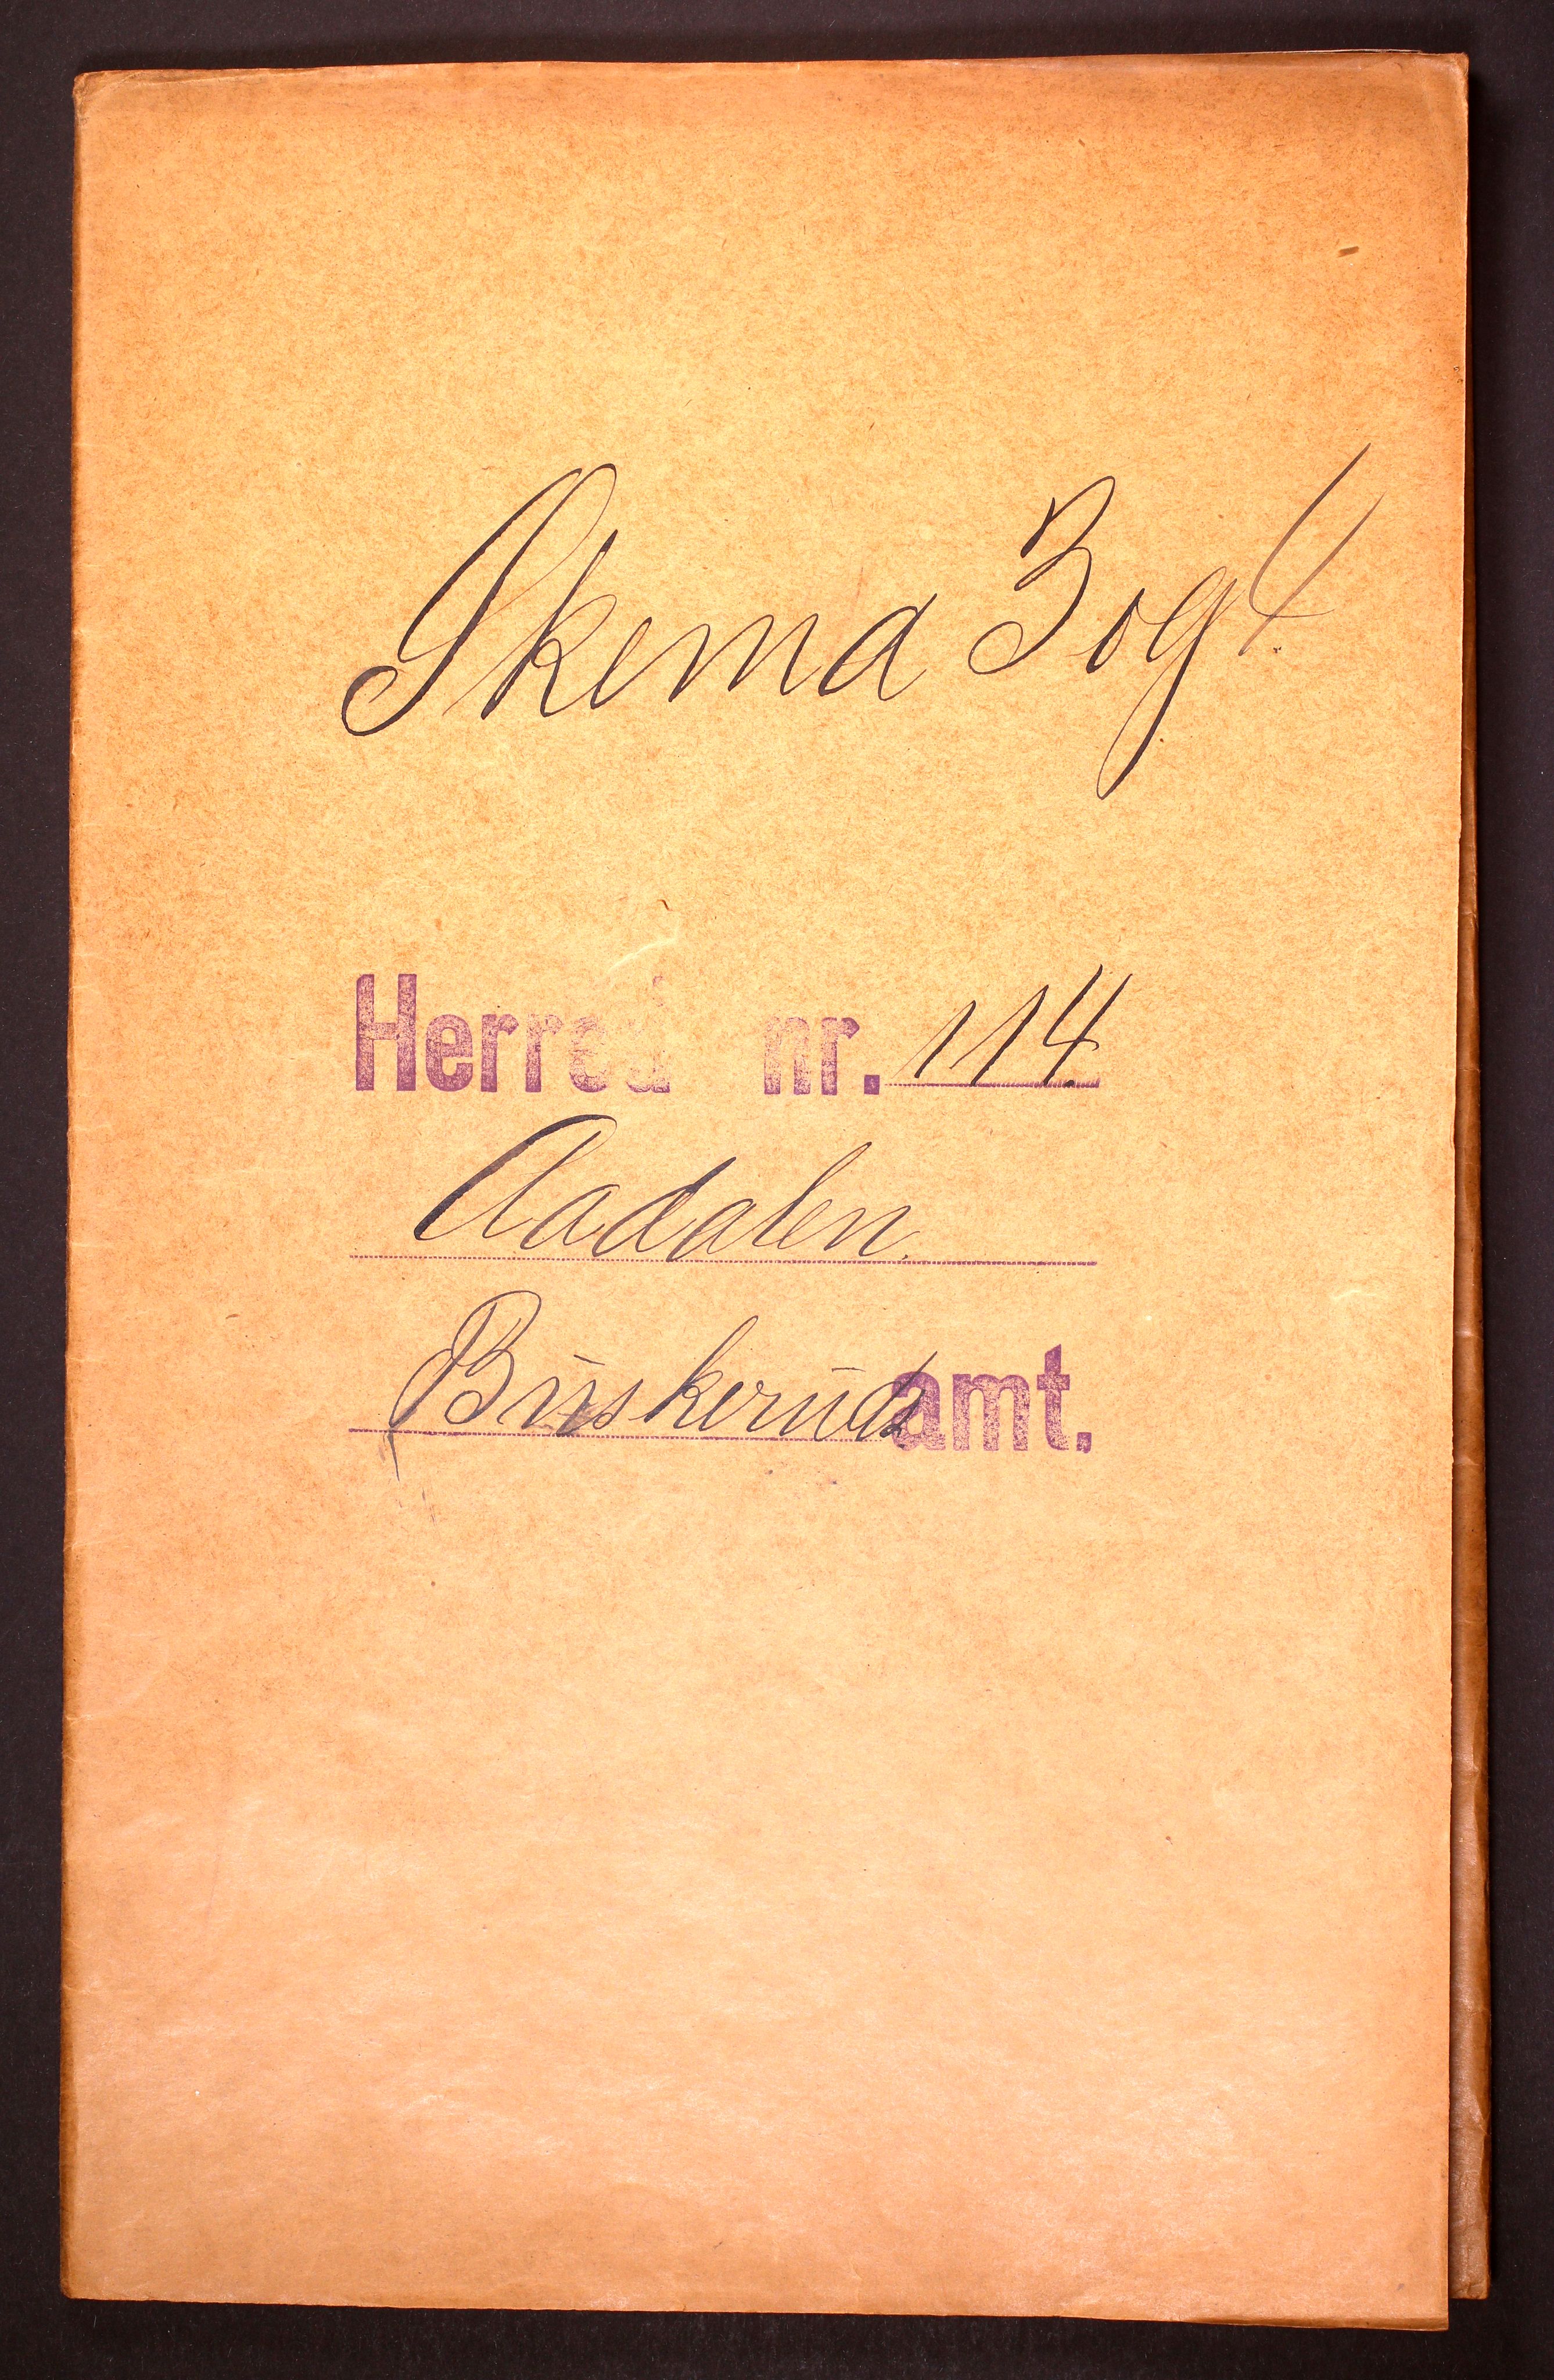 Skema 3 og 4.
Herred nr. 114.
Aadalen.
Buskeruds amt.